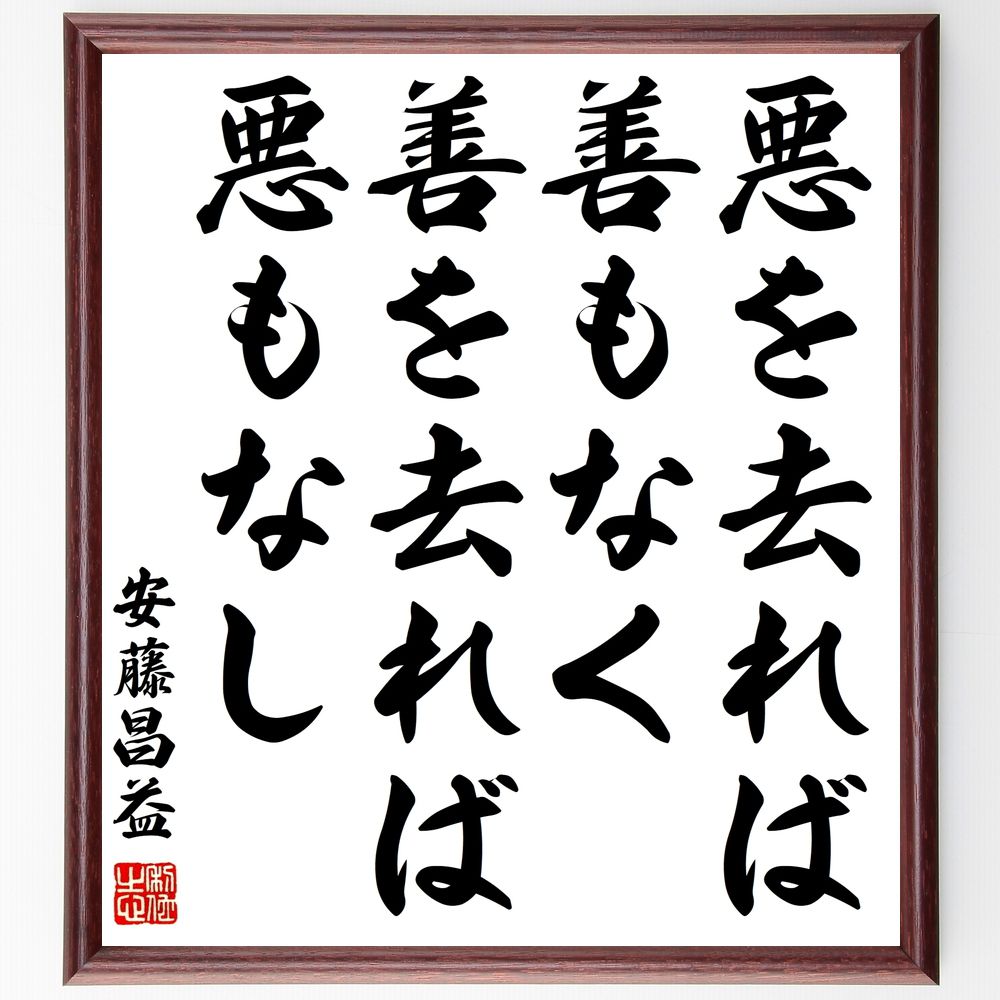 悪を去れば
善もなく
善を去れば
悪もなし
安藤昌益